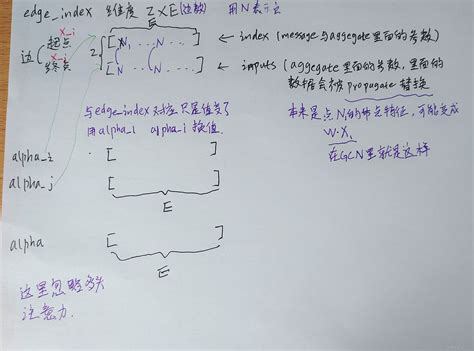 edge_index 维度 2×E(边数) 用N表示点
E
边 起点 x_i 2 [ N₁ ... N ... ] ← index (message与aggegate里面的参数)
终点 x_j [ N ... N ... ] ← inputs (aggegate里面的参数,里面的
数据会被propagate替换
与edge_index对应只是值变了
用alpha_i alpha_j换值
本来是点N的特点特征,可能变成
W·X₁
在GCN里就是这样
alpha_i [ ]
alpha_j [ ]
E
alpha [ ]
E
这里忽略多头
注意力.